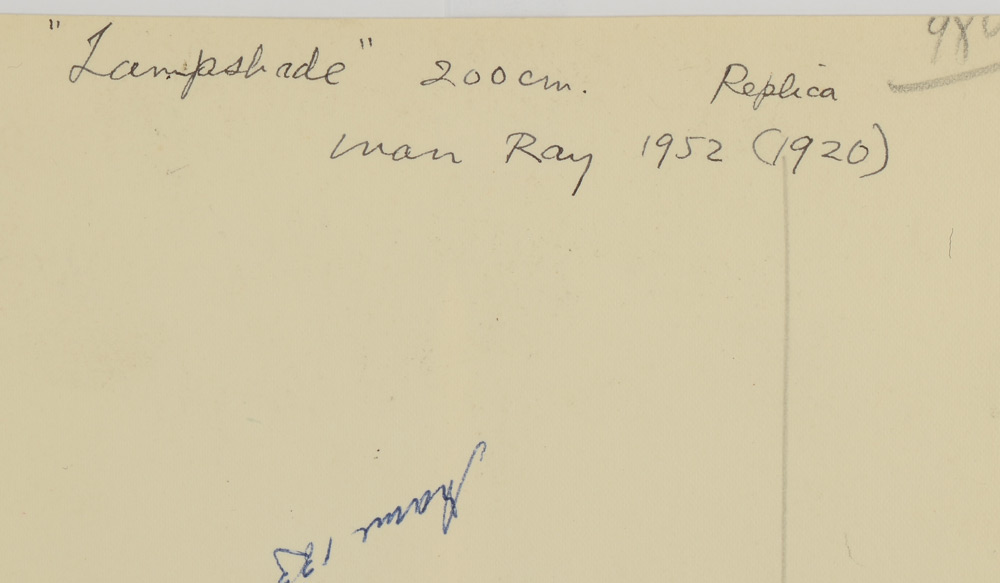 "Lampshade" 200cm. Replica
Man Ray 1952 (1920)